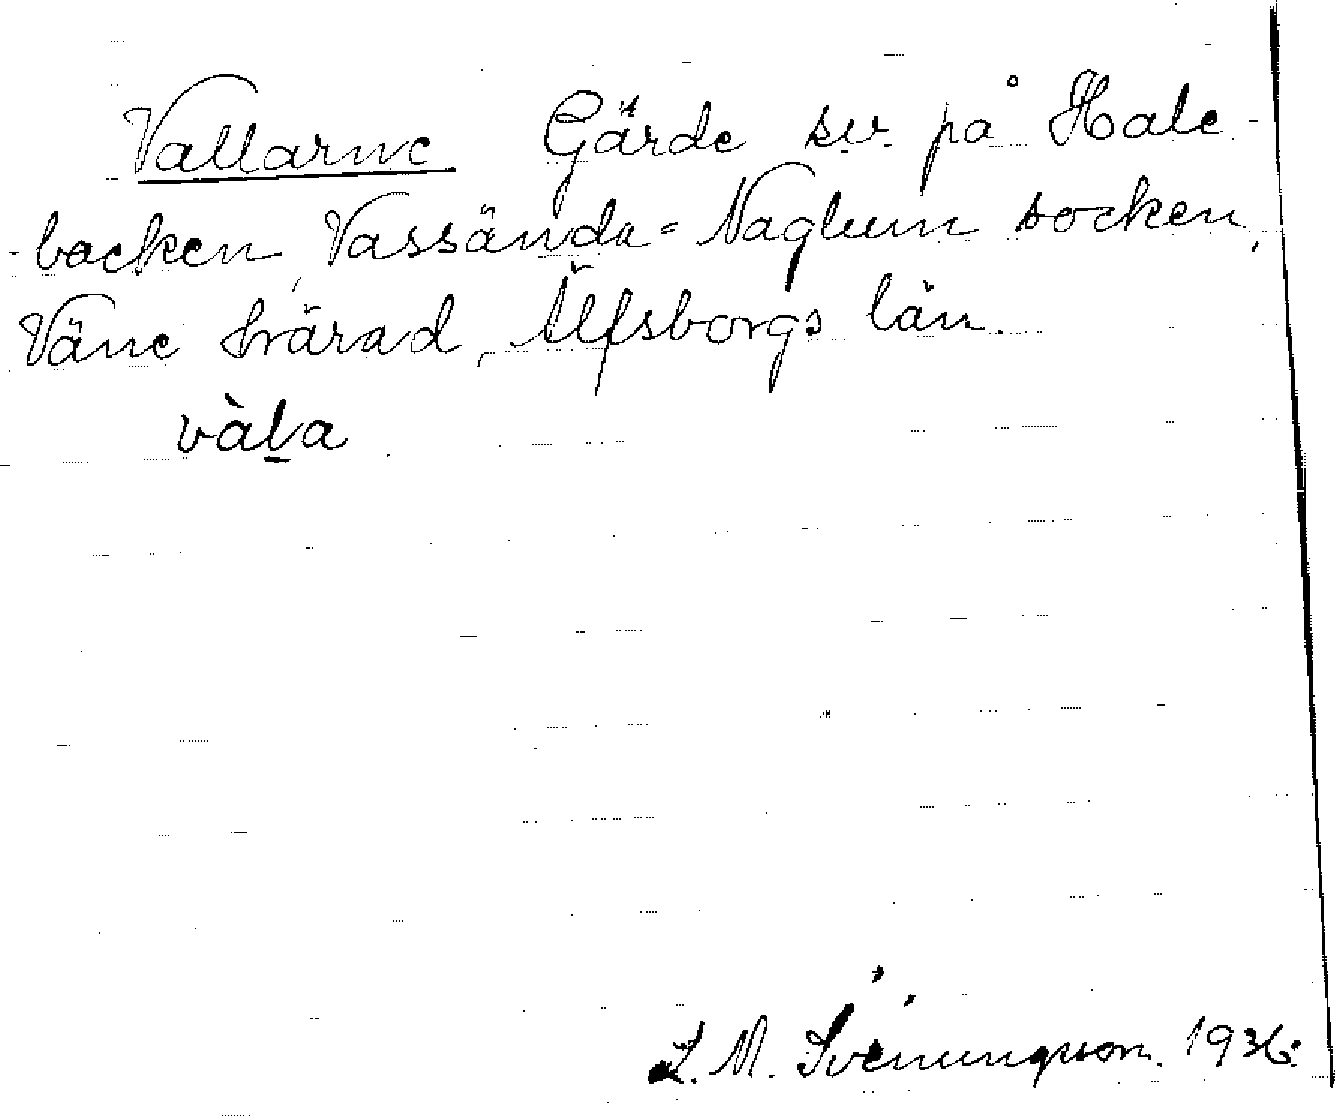 Vallarne Gärde sv. på Hale-
backen, Vassända-Naglum socken,
Väne härad, Älfsborgs län.
vàḻa
L. M. Svenungsson. 1936.